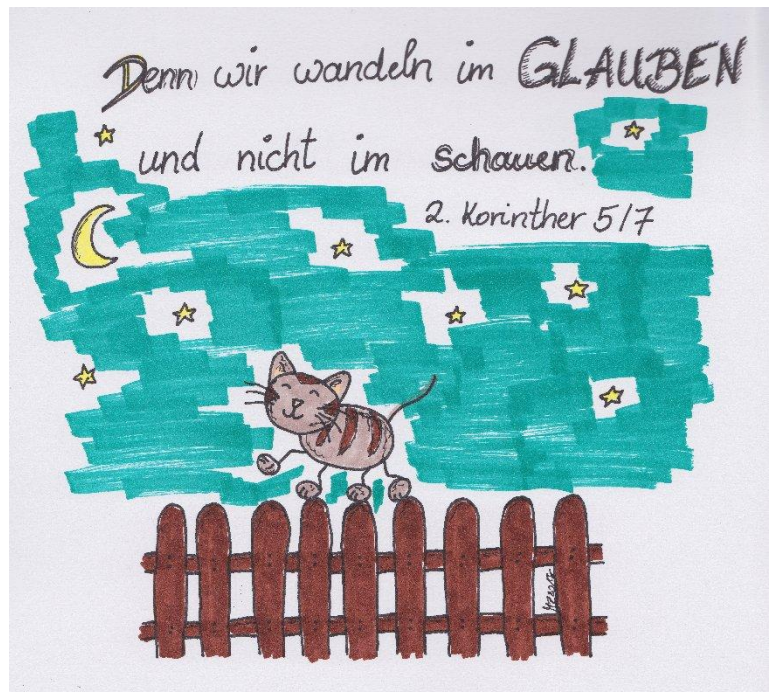 Denn wir wandeln im GLAUBEN
und nicht im schauen.
2. Korinther 5/7